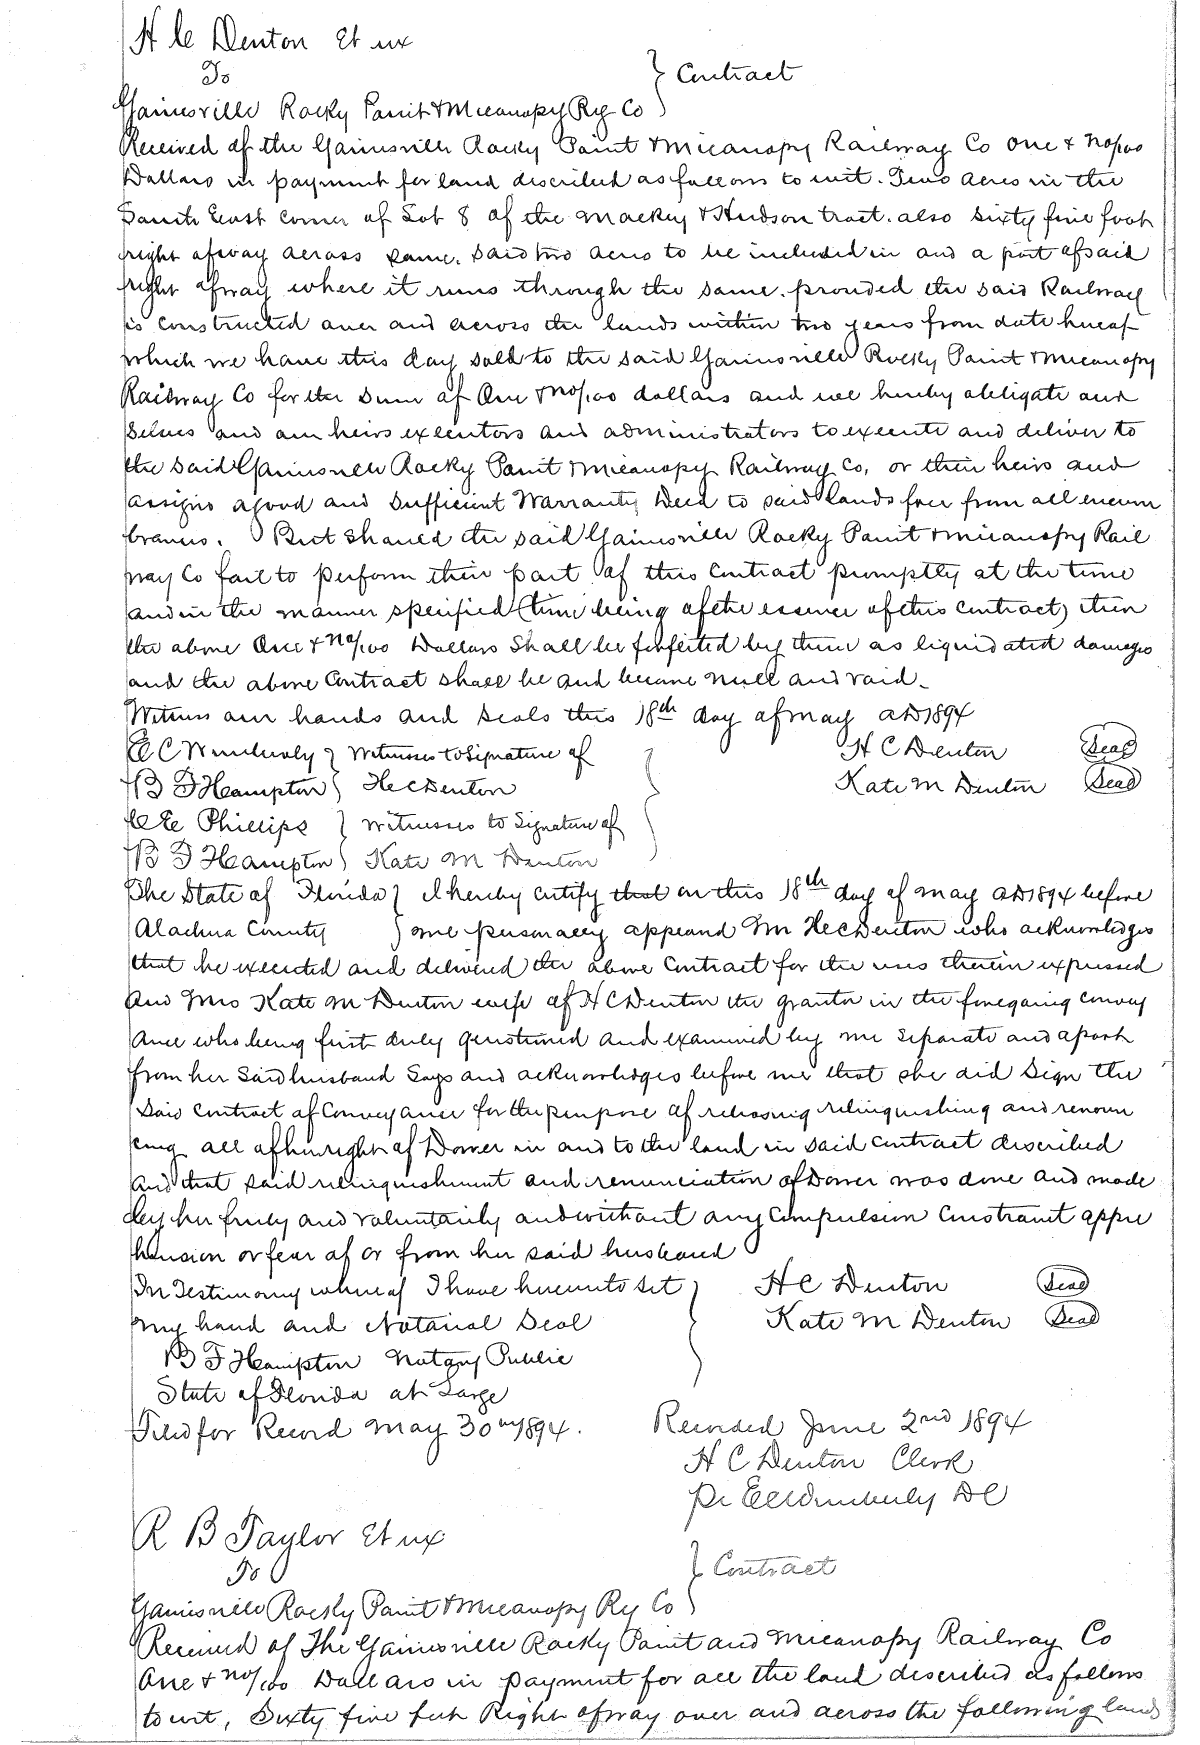 H C Denton Et ux
To } Contract
Gainesville Rocky Point & Micanopy Ry Co
Received of the Gainsville Rocky Point & Micanopy Railway Co One & No/100
Dollars in payment for land discribed as follows to wit. Two acres in the
South East corner of Lot 8 of the Mackey & Hudson tract. also Sixty five foot
right of way across same. Said two acres to be included in and a part of said
right of way where it runs through the same. provided the said Railway
is constructed over and across the lands within two years from date hereof
which we have this day sold to the said Gainsville Rocky Point & Micanopy
Railway Co for the Sum of One & No/100 dollars and we hereby obligate our
Selves and our heirs executors and administrators to execute and deliver to
the said Gainsville Rocky Point & Micanopy Railway Co, or their heirs and
assigns a good and Sufficient Warranty Deed to said lands free from all encum
brances. But should the said Gainsville Rocky Point & Micanopy Rail
way Co fail to perform their part of this Contract promptly at the time
and in the manner specified (time being of the essence of this contract) then
the above One & No/100 Dollars Shall be forfeited by them as liquidated damages
and the above Contract shall be and become null and void_
Witness our hands and seals this 18th day of May AD 1894
E C Wimberly } Witnesses to Signature of H C Denton Seal
B F Hampton } H C Denton Kate M Denton Seal
Phillips } Witnesses to Signature of
B F Hampton } Kate M Denton
The State of Florida } I hereby certify that on this 18th day of May AD 1894 before
Alachua County } me personally appeared Mr H C Denton who acknowledges
that he executed and delivered the above Contract for the uses therein expressed
And Mrs Kate M Denton wife of H C Denton the grantor in the foregoing convey
ance who being first duly questioned and examined by me separate and apart
from her said husband Says and acknowledges before me that she did Sign the
said contract of Conveyance for the purpose of releasing relinquishing and renoun
cing all of her right of Dower in and to the land in said contract described
And that said relinquishment and renunciation of Dower was done and made
by her freely and voluntarily and without any Compulsion Constraint appre
hension or fear of or from her said husband
In Testimony whereof I have hereunto set } H C Denton Seal
my hand and Notarial Seal Kate M Denton Seal
B F Hampton Notary Public
State of Florida at Large
Filed for Record May 30 1894. Recorded June 2nd 1894
H C Denton Clerk
Pr E C Wimberly DC
R B Taylor Et ux
To } Contract
Gainsville Rocky Point & Micanopy Ry Co
Received of The Gainsville Rocky Point and Micanopy Railway Co
One & No/100 Dollars in payment for all the land described as follows
to wit, Sixty five feet Right of way over and across the following lands